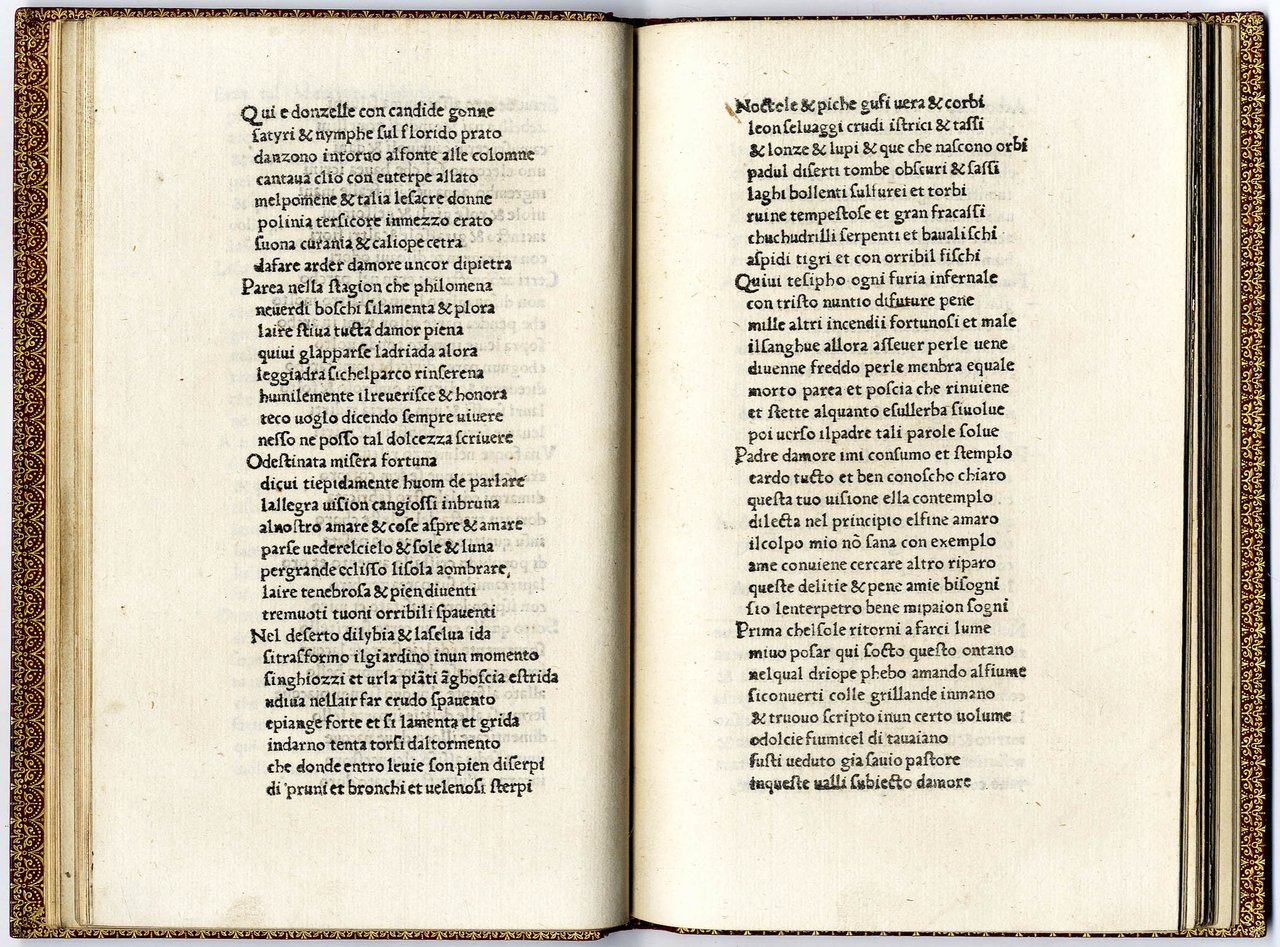 Qui e donzelle con candide gonne
ſatyri & nymphe ſul florido prato
danzono intorno alfonte alle colomne
cantaua clio con euterpe allato
melpomene & talia leſacre donne
polinia terſicore inmezzo erato
ſuona curania & caliope cetra
dafare arder damore uncor dipietra
Parea nella ſtagion che philomena
neuerdi boſchi ſilamenta & plora
laire ſtiua tucta damor piena
quiui glapparſe ladriada alora
leggiadra ſichelparco rinſerena
humilemente ilreueriſce & honora
teco uoglo dicendo ſempre uiuere
neſſo ne poſſo tal dolcezza ſcriuere
Odeſtinata miſera fortuna
dicui tiepidamente huom de parlare
lallegra uiſion cangioſſi inbruna
alnoſtro amare & coſe aſpre & amare
parſe uederelcielo & ſole & luna
pergrande ecliſſo liſola aombrare,
laire tenebroſa & pien diuenti
tremuoti tuoni orribili ſpauenti
Nel deſerto dilybia & laſelua ida
ſitraſformo ilgiardino inun momento
ſinghiozzi et urla piāti āghoſcia eſtrida
udiua nellair far crudo ſpauento
epiange forte et ſi lamenta et grida
indarno tenta torſi daltormento
che donde entro leuie ſon pien diſerpi
di pruni et bronchi et uelenoſi ſterpi
Noctole & piche guſi uera & corbi
leon ſeluaggi crudi iſtrici & taſſi
& lonze & lupi & que che naſcono orbi
padul diſerti tombe obſcuri & ſaſſi
laghi bollenti ſulfurei et torbi
ruine tempeſtoſe et gran fracaſſi
chuchudrilli ſerpenti et baualiſchi
aſpidi tigri et con orribil fiſchi
Quiui teſipho ogni furia infernale
con triſto nuntio difuture pene
mille altri incendii fortunoſi et male
ilſanghue allora aſſeuer perle uene
diuenne freddo perle menbra equale
morto parea et poſcia che rinuiene
et ſtette alquanto eſullerba ſiuolue
poi uerſo ilpadre tali parole ſolue
Padre damore imi conſumo et ſtemplo
tardo tucto et ben conoſcho chiaro
queſta tuo uiſione ella contemplo
dilecta nel principio elfine amaro
ilcolpo mio nō ſana con exemplo
ame conuiene cercare altro riparo
queſte delitie & pene amie biſogni
ſio lenterpetro bene mipaion ſogni
Prima chelſole ritorni a farci lume
miuo poſar qui ſocto queſto ontano
nelqual driope phebo amando alfiume
ſiconuerti colle grillande inmano
& truouo ſcripto inun certo uolume
odolcie fiumicel di tauaiano
fuſti ueduto gia ſauio paſtore
inqueſte ualli ſubiecto damore